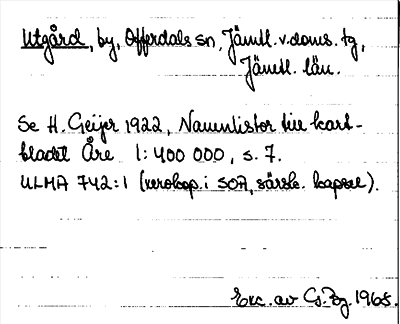 Utgård, by, Offerdals sn, Jämtl. v. doms. tg,
Jämtl. län.
Se H. Geijer 1922, Namnlistor till kart-
bladet Åre 1:400 000, s. 7.
ULMA 742:1 (xerokop. i SOA, särsk. kapsel).
Exc. av Cs. Bg. 1968.